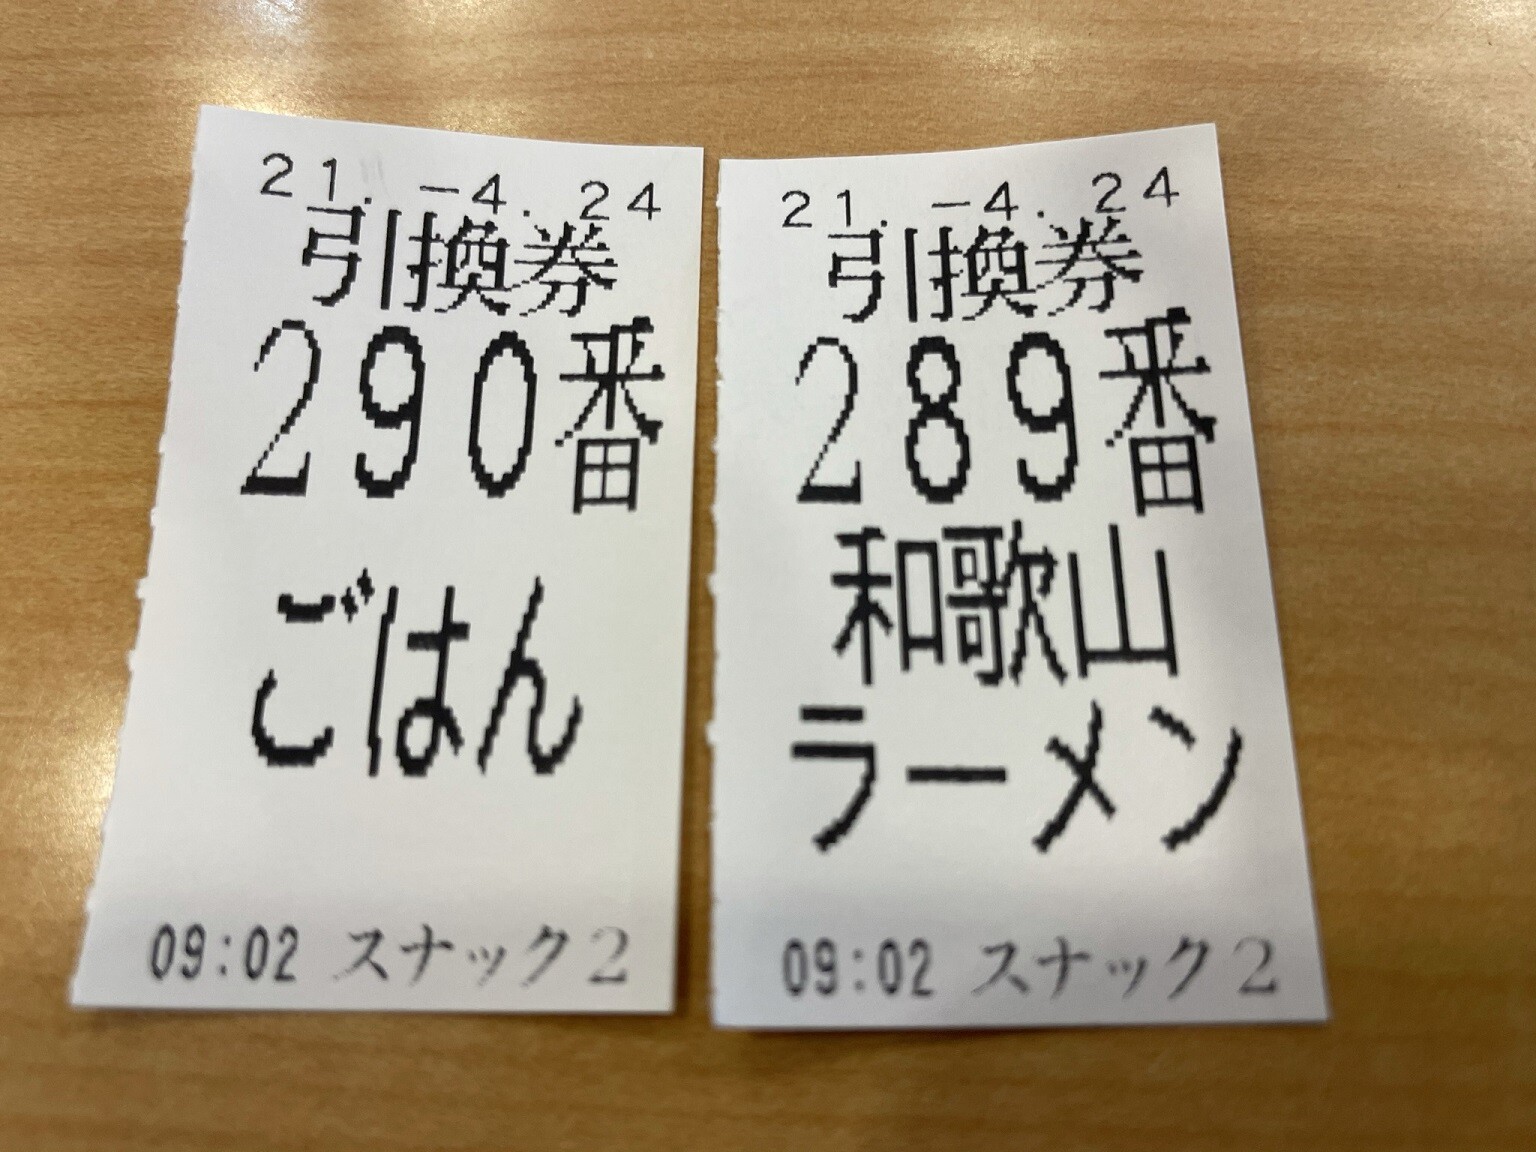 21.-4.24
引換券
290番
ごはん
09:02 スナック2
21.-4.24
引換券
289番
和歌山
ラーメン
09:02 スナック2